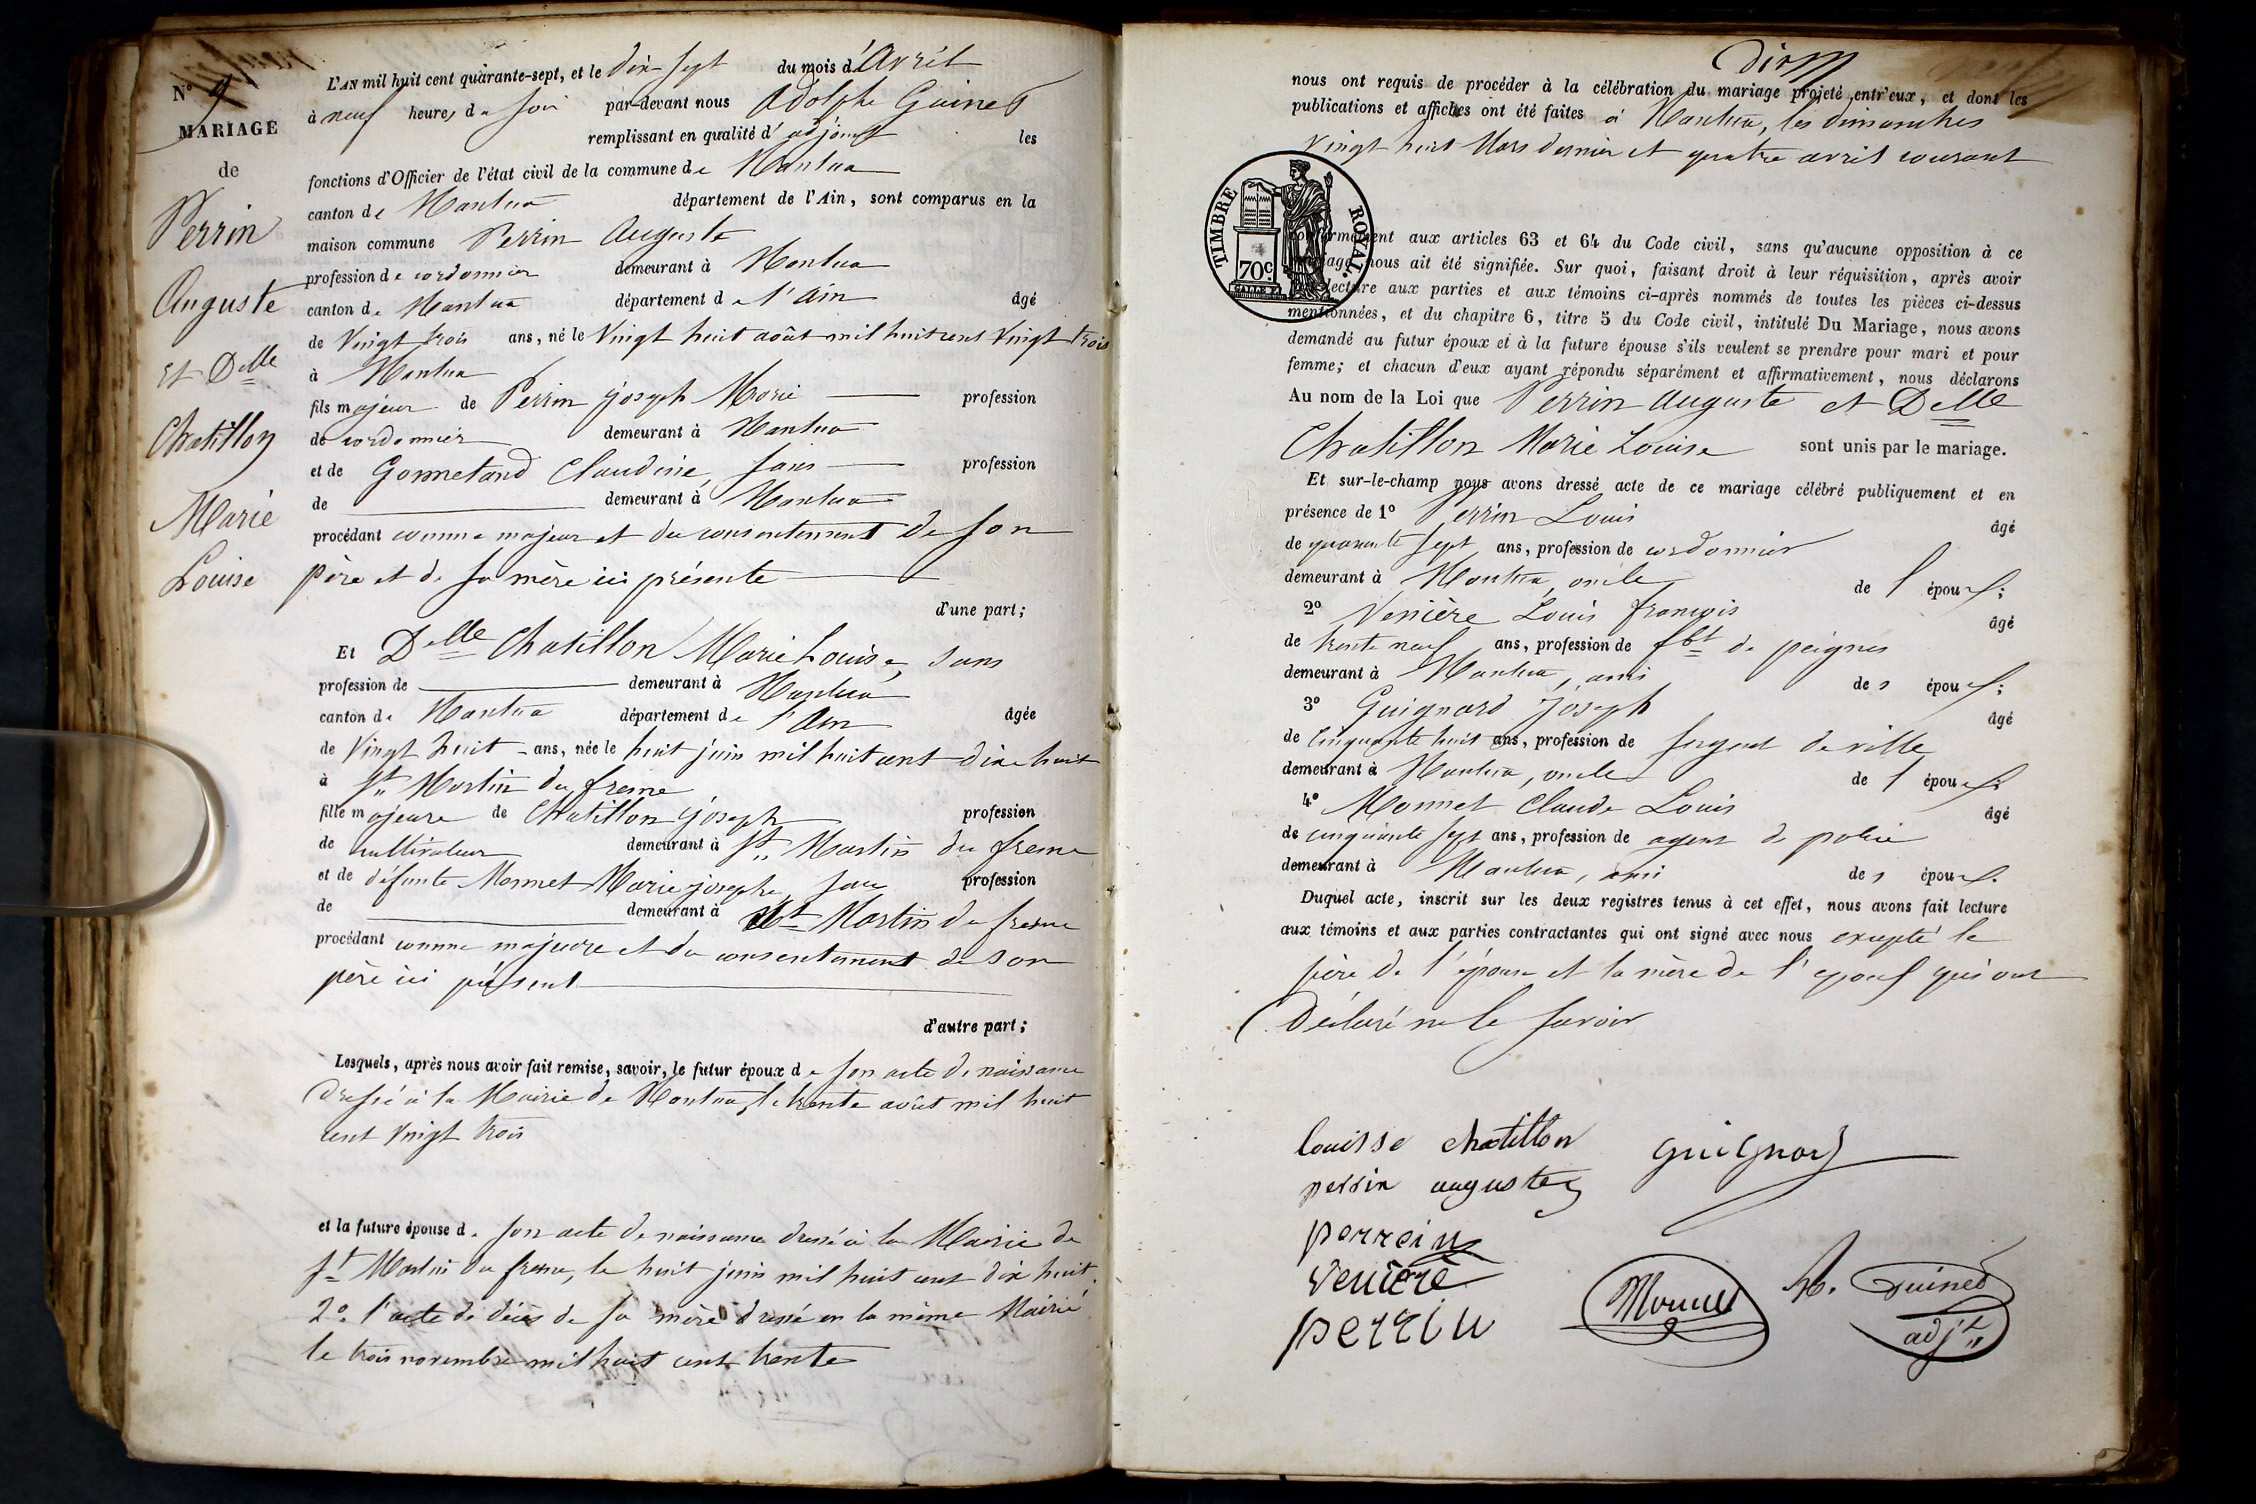 N° 9
MARIAGE
de
Perrin
Auguste
et Delle
Chatillon
Marie
Louise
L'AN mil huit cent quarante-sept, et le dix-sept du mois d'Avril
à neuf heures du soir par-devant nous Adolphe Guinet
remplissant en qualité d'adjoint les
fonctions d'Officier de l'état civil de la commune de Nantua
canton de Nantua département de l'Ain, sont comparus en la
maison commune Perrin Auguste
profession de cordonnier demeurant à Nantua
canton de Nantua département de l'Ain âgé
de Vingt trois ans, né le Vingt huit août mil huit cent Vingt trois
à Nantua
fils majeur de Perrin joseph Marie profession
de cordonnier demeurant à Nantua
et de Gonnetand Claudine, sans profession
de demeurant à Nantua
procédant comme majeur et du consentement de son
père et de sa mère ici présents
d'une part;
Et Delle Chatillon Marie Louise, sans
profession de demeurant à Nantua
canton de Nantua département de l'Ain âgée
de Vingt huit ans, née le huit juin mil huit cent dix huit
à St Martin du fresne
fille majeure de Chatillon joseph profession
de cultivateur demeurant à St Martin du fresne
et de défunte Monnet Marie josephe, sans profession
de demeurant à St Martin du fresne
procédant comme majeure et du consentement de son
père ici présent
d'autre part;
Lesquels, après nous avoir fait remise, savoir, le futur époux de son acte de naissance
dressé à la Mairie de Nantua, le trente août mil huit
cent vingt trois
et la future épouse de son acte de naissance dressé à la Mairie de
St Martin du fresne, le huit juin mil huit cent dix huit.
2° l'acte de décès de sa mère dressé en la même Mairie
le trois novembre mil huit cent trente
nous ont requis de procéder à la célébration du mariage projeté entr'eux, et dont les
publications et affiches ont été faites à Nantua, les dimanches
Vingt huit Mars dernier et quatre avril courant
TIMBRE ROYAL.
70c.
conformément aux articles 63 et 64 du Code civil, sans qu'aucune opposition à ce
mariage nous ait été signifiée. Sur quoi, faisant droit à leur réquisition, après avoir
lecture aux parties et aux témoins ci-après nommés de toutes les pièces ci-dessus
mentionnées, et du chapitre 6, titre 5 du Code civil, intitulé Du Mariage, nous avons
demandé au futur époux et à la future épouse s'ils veulent se prendre pour mari et pour
femme; et chacun d'eux ayant répondu séparément et affirmativement, nous déclarons
Au nom de la Loi que Perrin Auguste et Delle
Chatillon Marie Louise sont unis par le mariage.
Et sur-le-champ nous avons dressé acte de ce mariage célébré publiquement et en
présence de 1° Perrin Louis âgé
de quarante sept ans, profession de cordonnier
demeurant à Nantua, oncle de l'époux;
2° Venière Louis françois âgé
de trente neuf ans, profession de fbt de peignes
demeurant à Nantua, ami des époux;
3° Guignard Joseph âgé
de Cinquante huit ans, profession de sergent de ville
demeurant à Nantua, oncle de l'époux;
4° Monnet Claude Louis âgé
de cinquante sept ans, profession de agent de police
demeurant à Nantua, ami des époux.
Duquel acte, inscrit sur les deux registres tenus à cet effet, nous avons fait lecture
aux témoins et aux parties contractantes qui ont signé avec nous excepté le
père de l'épouse et la mère de l'époux qui ont
Déclaré ne le savoir
louisse chatillon guignard
perrin auguste
perrein
venière
perrin Monnet A. Guinet
adjt